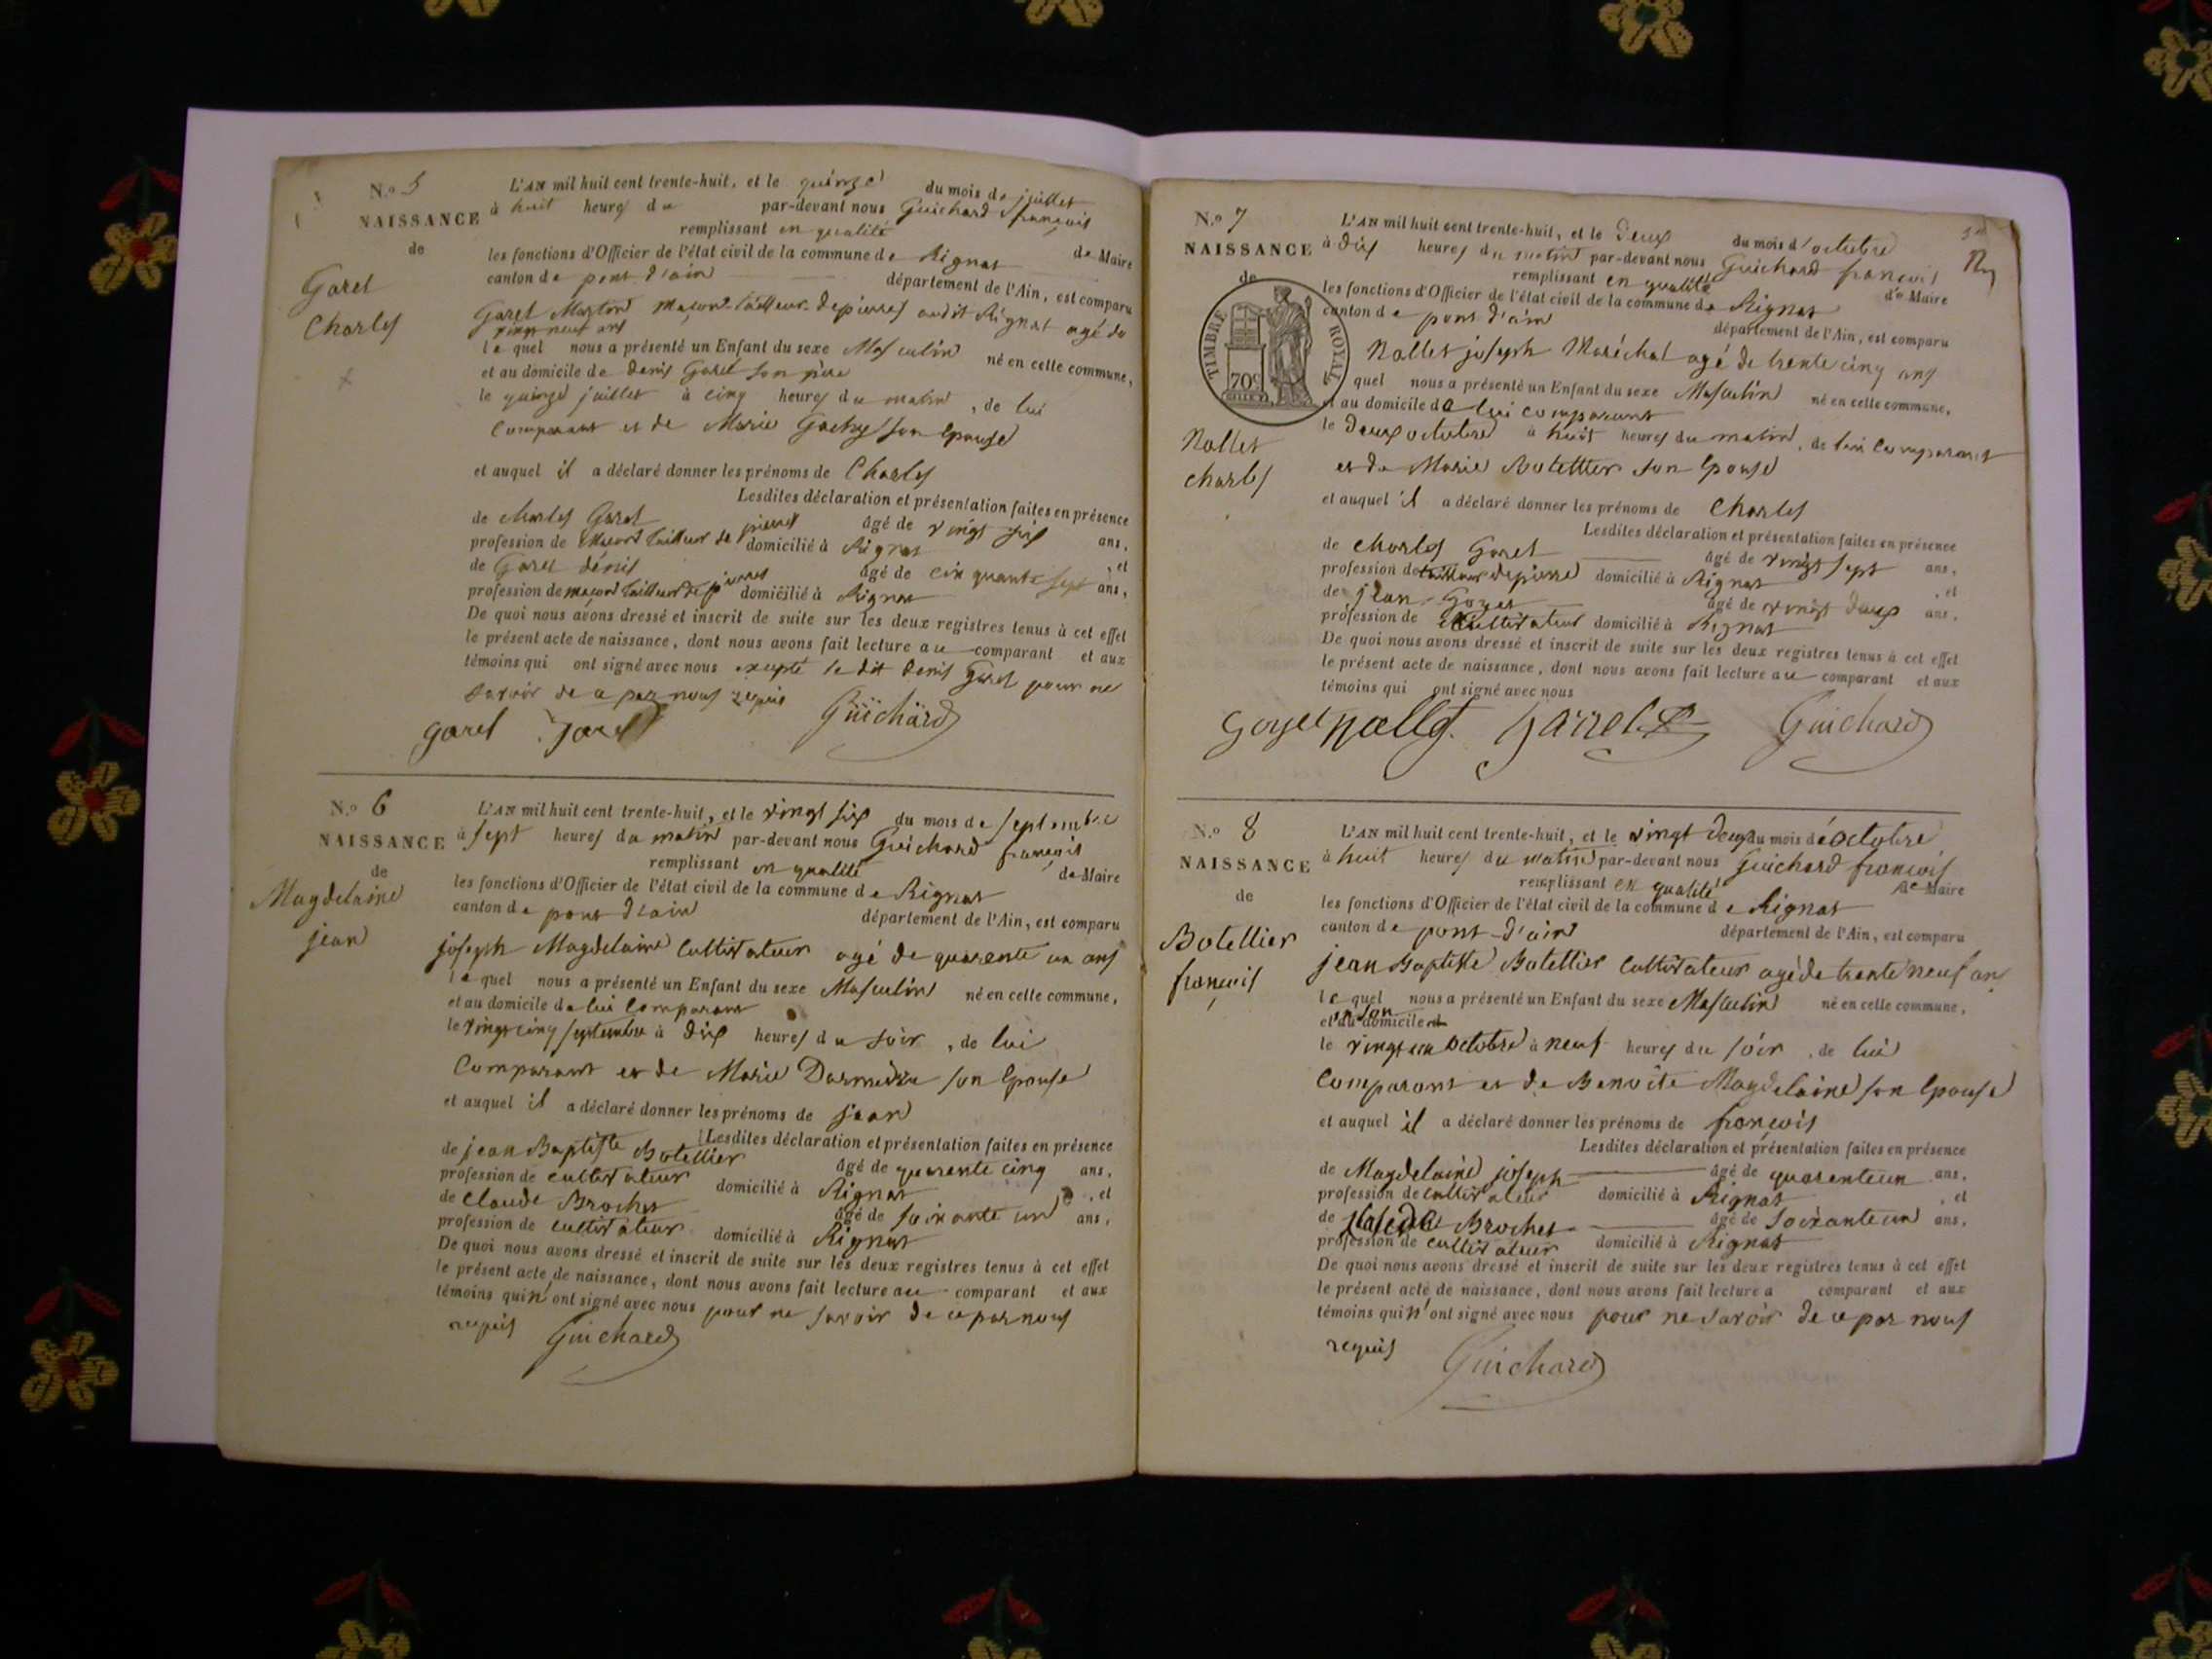 N.o 5
NAISSANCE
de
Garel
Charles
L'AN mil huit cent trente-huit, et le quinze du mois de juillet
à huit heures du par-devant nous Guichard françois
remplissant en qualité de Maire
les fonctions d'Officier de l'état civil de la commune de Rignat
canton de pont d'ain département de l'Ain, est comparu
Garel Maçon tailleur de pierres audit Rignat agé de
vingt neuf ans
le quel nous a présenté un Enfant du sexe Masculin né en cette commune,
et au domicile de denis Garel son père
le quinze juillet à cinq heures du matin, de lui
Comparant et de Marie Gachy son Epouse
et auquel il a déclaré donner les prénoms de Charles
Lesdites déclaration et présentation faites en présence
de charles Garel âgé de vingt six ans,
profession de Maçon tailleur de pierres domicilié à Rignat, et
de Garel dénis âgé de cinquante sept ans,
profession de maçon tailleur de pierres domicilié à Rignat
De quoi nous avons dressé et inscrit de suite sur les deux registres tenus à cet effet
le présent acte de naissance, dont nous avons fait lecture au comparant et aux
témoins qui ont signé avec nous excepté le dit Denis Garel pour ne
savoir de ce par nous requis
garel garel Guichard
N.o 6
NAISSANCE
de
Magdelaine
jean
L'AN mil huit cent trente-huit, et le vingt six du mois de septembre
à sept heures du matin par-devant nous Guichard françois
remplissant en qualité de Maire
les fonctions d'Officier de l'état civil de la commune de Rignat
canton de pont d'ain département de l'Ain, est comparu
joseph Magdelaine Cultivateur agé de quarente un ans
le quel nous a présenté un Enfant du sexe Masculin né en cette commune,
et au domicile de lui Comparant
le vingt cinq septembre à dix heures du soir, de lui
Comparant et de Marie son Epouse
et auquel il a déclaré donner les prénoms de jean
Lesdites déclaration et présentation faites en présence
de jean Baptiste Botellier âgé de quarente cinq ans,
profession de cultivateur domicilié à Rignat, et
de Claude Brochet âgé de soixante un ans,
profession de cultivateur domicilié à Rignat
De quoi nous avons dressé et inscrit de suite sur les deux registres tenus à cet effet
le présent acte de naissance, dont nous avons fait lecture au comparant et aux
témoins qui n'ont signé avec nous pour ne savoir de ce par nous
requis Guichard
N.o 7
NAISSANCE
de
TIMBRE ROYAL
70c
Nallet
charles
L'AN mil huit cent trente-huit, et le deux du mois d'octobre
à dix heures du matin par-devant nous Guichard françois
remplissant en qualité de Maire
les fonctions d'Officier de l'état civil de la commune de Rignat
canton de pont d'ain département de l'Ain, est comparu
Nallet joseph Maréchal agé de trente cinq ans
quel nous a présenté un Enfant du sexe Masculin né en cette commune,
et au domicile de lui comparant
le deux octobre à huit heures du matin, de lui Comparant
et de Marie Botellier son Epouse
et auquel il a déclaré donner les prénoms de Charles
Lesdites déclaration et présentation faites en présence
de Charles Garel âgé de vingt sept ans,
profession de tailleur de pierre domicilié à Rignat, et
de jean Goyet âgé de vingt deux ans,
profession de Cultivateur domicilié à Rignat
De quoi nous avons dressé et inscrit de suite sur les deux registres tenus à cet effet
le présent acte de naissance, dont nous avons fait lecture au comparant et aux
témoins qui ont signé avec nous
Goyet nallet garrel Guichard
N.o 8
NAISSANCE
de
Botellier
françois
L'AN mil huit cent trente-huit, et le vingt deux du mois de octobre
à huit heures du matin par-devant nous Guichard françois
remplissant en qualité de Maire
les fonctions d'Officier de l'état civil de la commune de Rignat
canton de pont d'ain département de l'Ain, est comparu
jean Baptiste Botellier Cultivateur agé de trente neuf ans
le quel nous a présenté un Enfant du sexe Masculin né en cette commune,
en son
et au domicile
le vingt un octobre à neuf heures du soir, de lui
Comparant et de Benoite Magdelaine son Epouse
et auquel il a déclaré donner les prénoms de françois
Lesdites déclaration et présentation faites en présence
de Magdelaine joseph âgé de quarente un ans,
profession de cultivateur domicilié à Rignat, et
de Brochet âgé de soixante un ans,
profession de cultivateur domicilié à Rignat
De quoi nous avons dressé et inscrit de suite sur les deux registres tenus à cet effet
le présent acte de naissance, dont nous avons fait lecture a comparant et aux
témoins qui n'ont signé avec nous pour ne savoir de ce par nous
requis Guichard